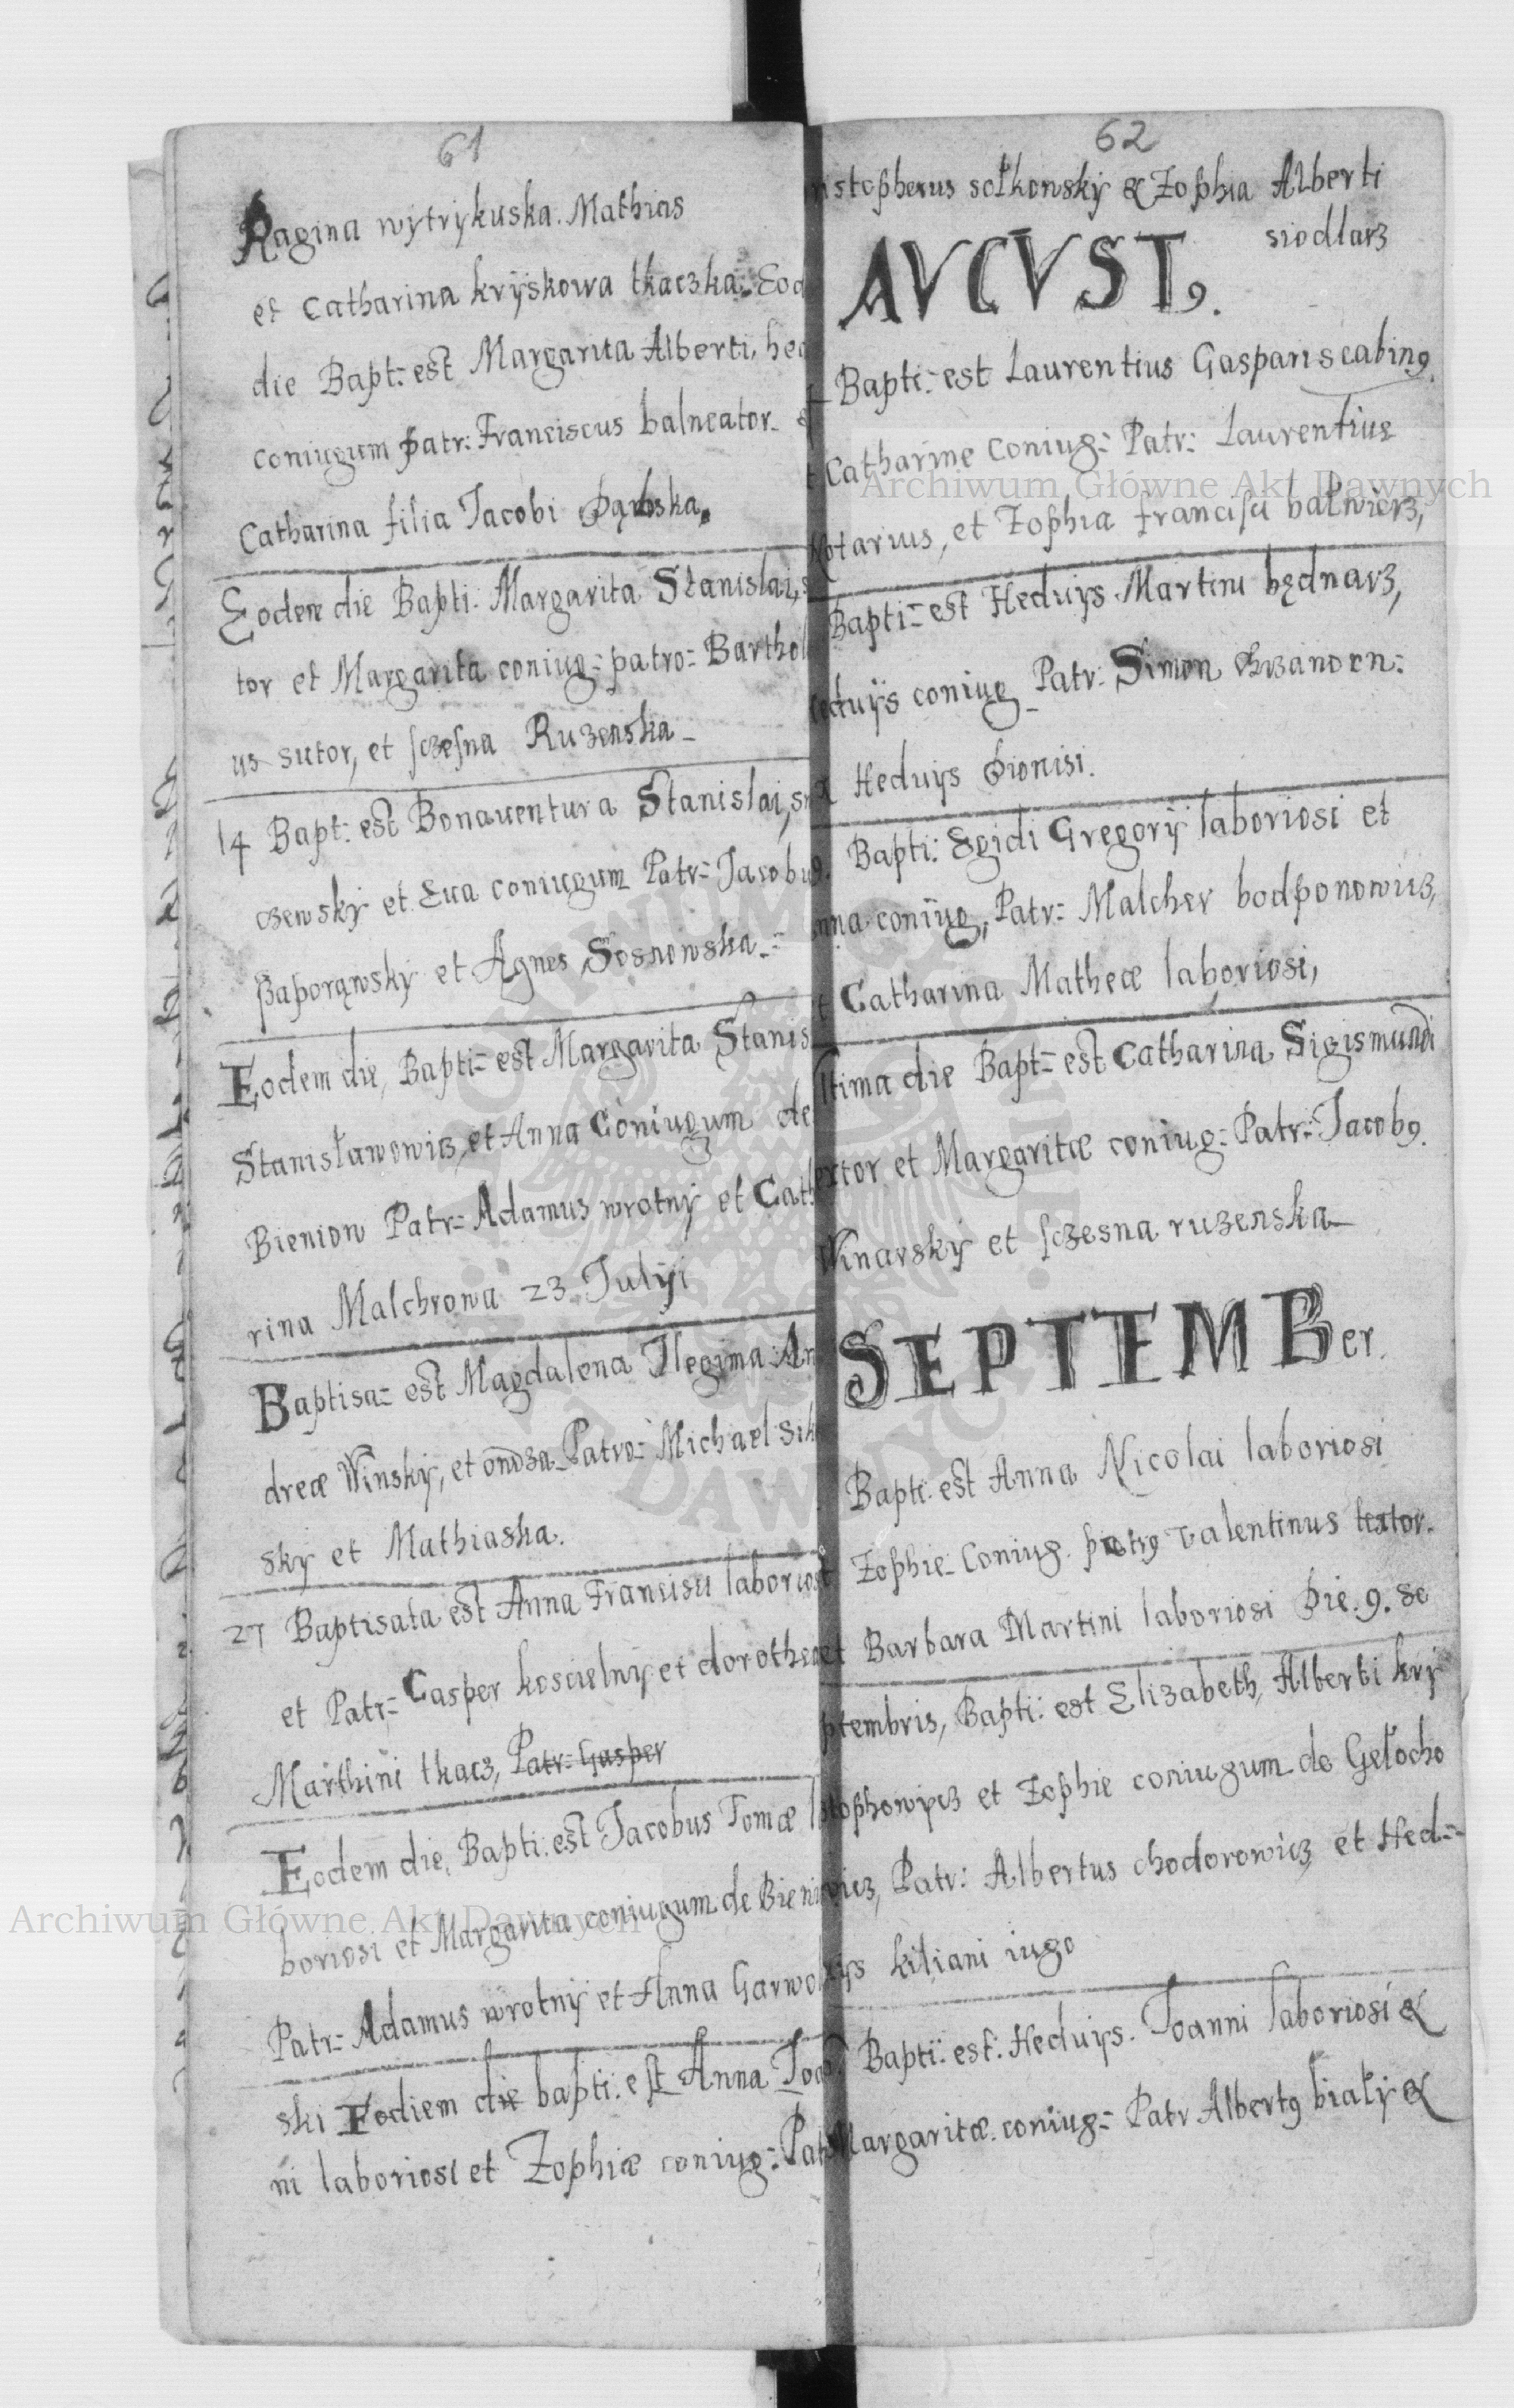 61
Ragina wytrykuska. Mathias
et Catharina kryskowa tkaczka. Eod
die Bapt: est Margarita Alberti, hed
coniugum Patr: Franciscus balneator &
Catharina filia Jacobi Dąbska
Eodem die Bapti: Margarita Stanislai, s
tor et Margarita coniug: patro: Barthol
us sutor, et sczesna Ruzenska
14 Bapt: est Bonauentura Stanislai, sr
czewsky et Eua coniugum Patr: Jacobus
Paporąwsky et Agnes Sosnowska
Eodem die, Bapti: est Margarita Stanis
Stanisławowicz, et Anna Coniugum de
Bieniow Patr: Adamus wrotny et Cath
rina Malchrowa 23 Julÿi
Baptisa: est Magdalena An
dreæ Winsky, et Patro: Michael sik
sky et Mathiaska.
27 Baptisata est Anna Francisci laboriosi
et Patr: Casper koscielny et dorothea
Marthini tkacz, Patr: Gasper
Eodem die, Bapti: est Jacobus Tomæ l
boriosi et Margarita coniugum de Bieni
Patr: Adamus wrotny et Anna Garwo
ski Eodiem die bapti: est Anna Joa
ni laboriosi et Zophiæ coniug: Patr
62
ristopherus sołkonsky & Zophia Alberti
siodlarz
AVCVST9.
Bapti: est Laurentius Gaspari scabin9
t Catharine Coniug: Patr: Laurentius
Notarius, et Zophia francisci balwierz,
Bapti: est Heduÿs Martini będnarz,
heduÿs coniug Patr: Simon
Heduÿs Dionisi.
Bapti: Egidi Gregorÿ laboriosi et
nna coniug, Patr: Malcher bodponowicz,
t Catharina Matheæ laboriosi,
ltima die Bapt: est Catharina Sigismundi
extor et Margaritæ coniug: Patr: Jacob9.
Winarsky et sczesna ruzenska
SEPTEMBer.
Bapti: est Anna Nicolai laboriosi
Zophie Coniug. patr9 Valentinus textor.
et Barbara Martini laboriosi Die. 9. Se
ptembris, Bapti: est Elizabeth, Alberti kry
stophowicz et Zophie coniugum de Gełocho
wicz, Patr: Albertus chodorowicz et Hed
wys kiliani iugo
Bapti: est: Heduÿs. Joanni laboriosi &
Margaritæ. coniug: Patr Albert9 biały &
Archiwum Główne Akt Dawnych
Archiwum Główne Akt Dawnych
ARCHIWUM GŁÓWNE AKT DAWNYCH